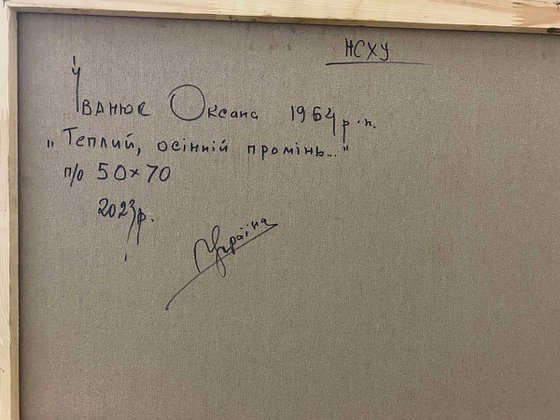 НСХУ
Іванюк Оксана 1964 р.н.
„Теплий, осінній промінь..."
п/о 50×70
2023р.
Україна